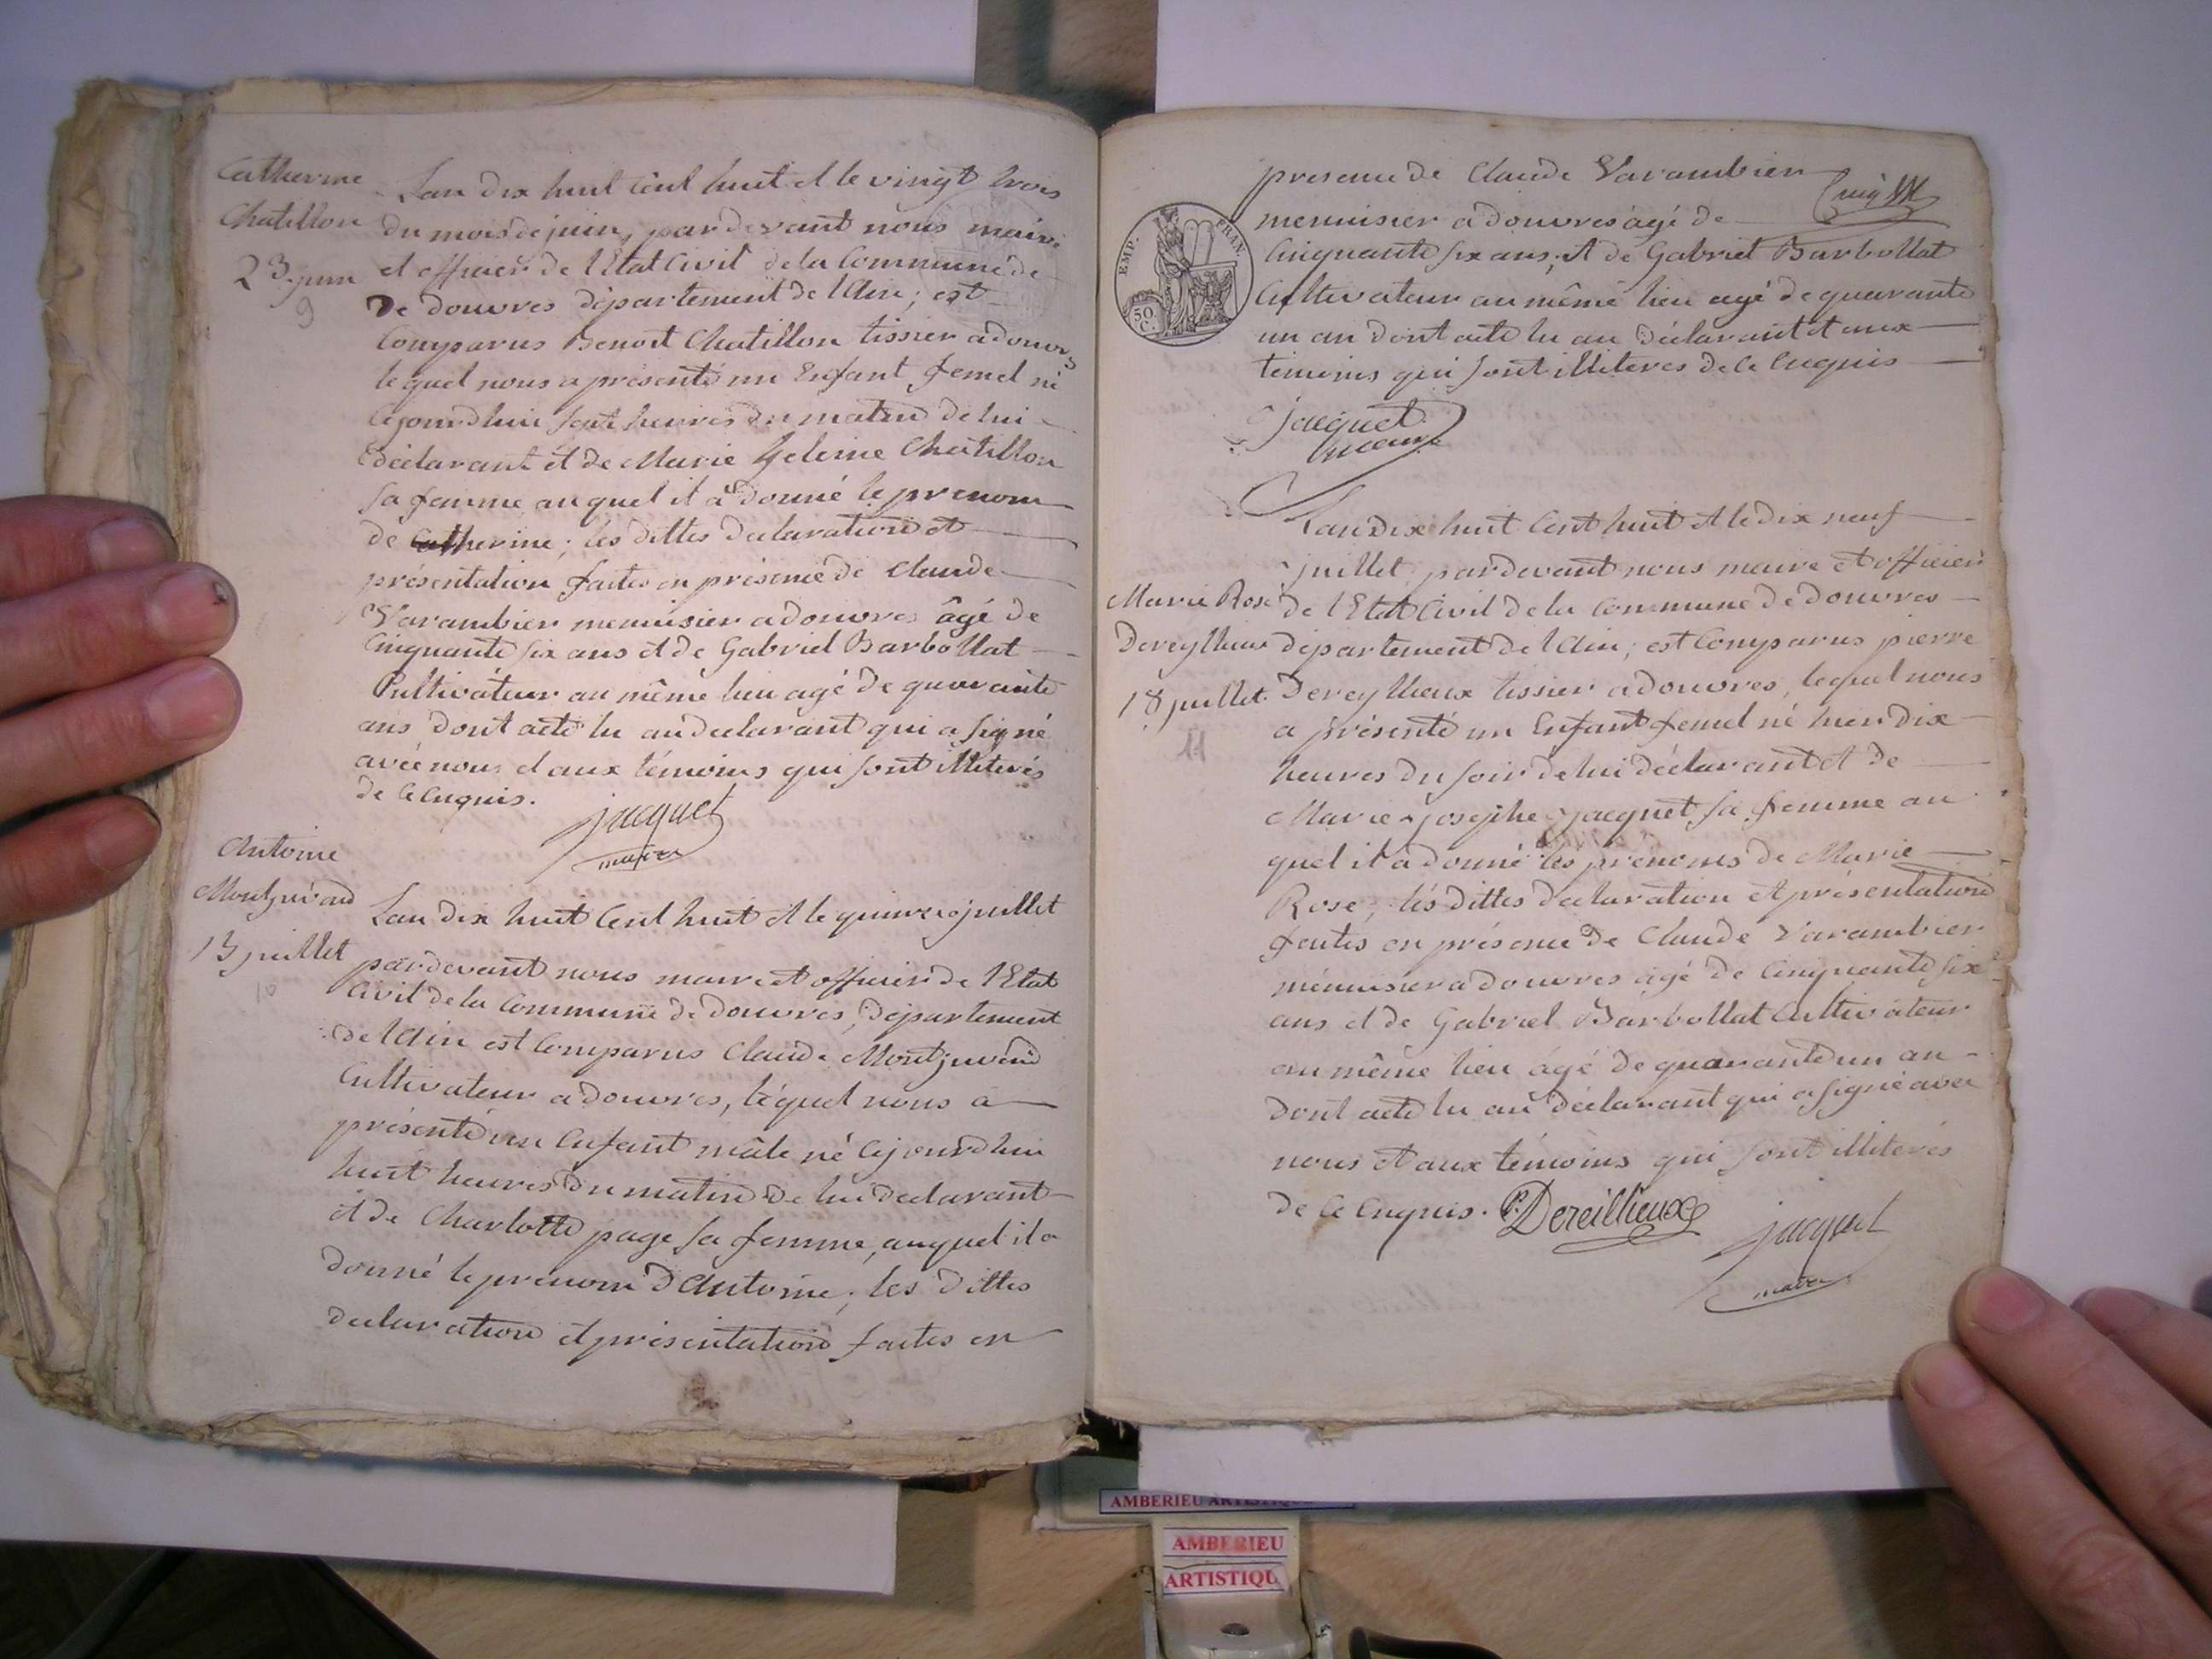 Catherine
Chatillon
23 juin
9
Lan dix huit cent huit et le vingt trois
du mois de juin, pardevant nous maire
et officier de l'Etat Civil de la Commune de
De douvres département de l'Ain; est
Comparus Benoit Chatillon tissier a douvres
lequel nous a présenté un Enfant femel né
cejourdhui sept heures du matin de lui
déclarant et de Marie Chatillon
sa femme auquel il a donné le prenom
de Catherine; les dittes declaration et
présentation faites en présence de Claude
Varambier menuisier a douvres âgé de
Cinquante six ans et de Gabriel Barbollat
Cultivateur au même lieu agé de quarante
ans dont acte lu au declarant qui a signé
avec nous et aux témoins qui sont illiterés
de ce Enquis.
jacquet
maire
Antoine
Montjuvend
15 juillet
10
Lan dix huit Cent huit et le quinze juillet
pardevant nous maire et officier de l'Etat
Civil de la Commune de Douvres, département
de l'Ain est Comparus Claude Montjuvend
Cultivateur a douvres, lequel nous a
présenté un Enfant mâle né cejourdhui
huit heures du matin de lui declarant
et de Charlotte page sa femme, auquel il a
donné le prenom d'Antoine; les dittes
declaration et présentation faites en
presence de Claude Varambier
menuisier a douvres agé de
Cinquante six ans, et de Gabriel Barbollat
Cultivateur au même lieu agé de quarante
un an dont acte lu au déclarant et aux
témoins qui sont illiteres de ce Enquis
EMP. FRAN.
50 C.
jacquet
maire
Lan Dix huit Cent huit et le dix neuf
juillet, pardevant nous maire et officier
Marie Rose
Dereylieux
18 juillet
11
de l'Etat Civil de la Commune de Douvres
département de l'Ain; est Comparus pierre
Dereyllieux tissier a douvres, lequel nous
a présenté un Enfant femel né hier dix
heures du soir de lui déclarant et de
Marie josephe jacquet sa femme au
quel il a donné les prenoms de Marie
Rose; les dittes declaration et présentation
faites en présence de Claude Varambier
ménuisier a douvres agé de Cinquante six
ans et de Gabriel Barbollat Cultivateur
au même lieu âgé de quarante un an
dont acte lu au déclarant qui a signé avec
nous et aux témoins qui sont illiterés
de ce Enquis. P. Dereillieux
jacquet
maire
AMBERIEU ARTISTIQUE
AMBERIEU
ARTISTIQU